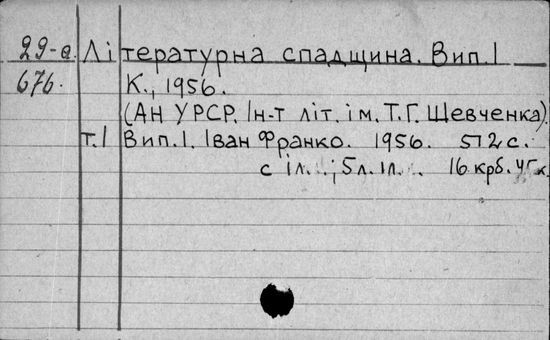 29-а Літературна спадщина. Вип. 1
676. К., 1956.
(АН УРСР. Ін-т літ. ім. Т.Г. Шевченка).
т. 1 Вип. 1. Іван Франко. 1956. 512 с.
с іл.; 5 л. іл. 16 крб. 45 к.